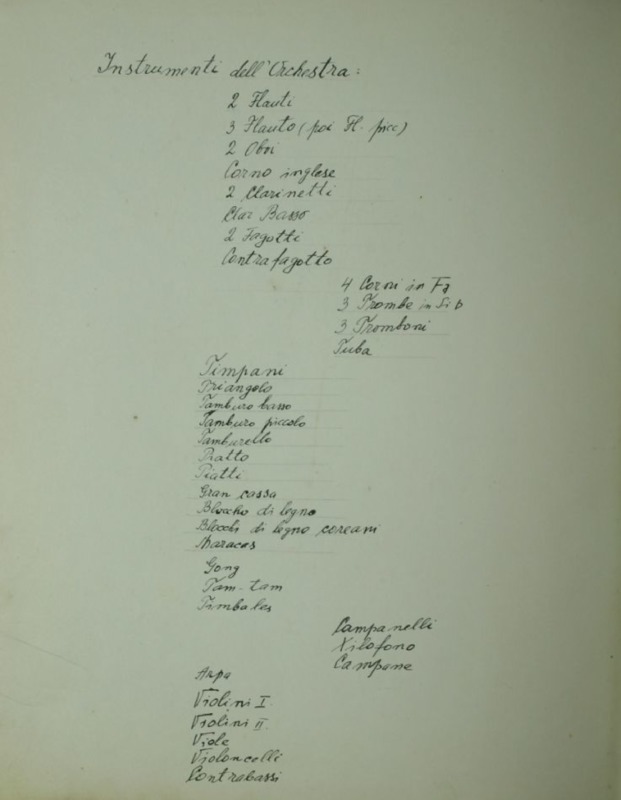 Instrumenti dell'Orchestra:
2 Flauti
3 Flauto (poi Fl. picc)
2 Oboi
Corno inglese
2 Clarinetti
Clar Basso
2 Fagotti
Contrafagotto
4 Corni in Fa
3 Trombe in Si b
3 Tromboni
Tuba
Timpani
Triangolo
Tamburo basso
Tamburo piccolo
Tamburello
Piatto
Piatti
Gran cassa
Bloccho di legno
Blocchi di legno coreani
Maracas
Gong
Tam-tam
Timbales
Campanelli
Xilofono
Campane
Arpa
Violini I.
Violini II.
Viole
Violoncelli
Contrabassi